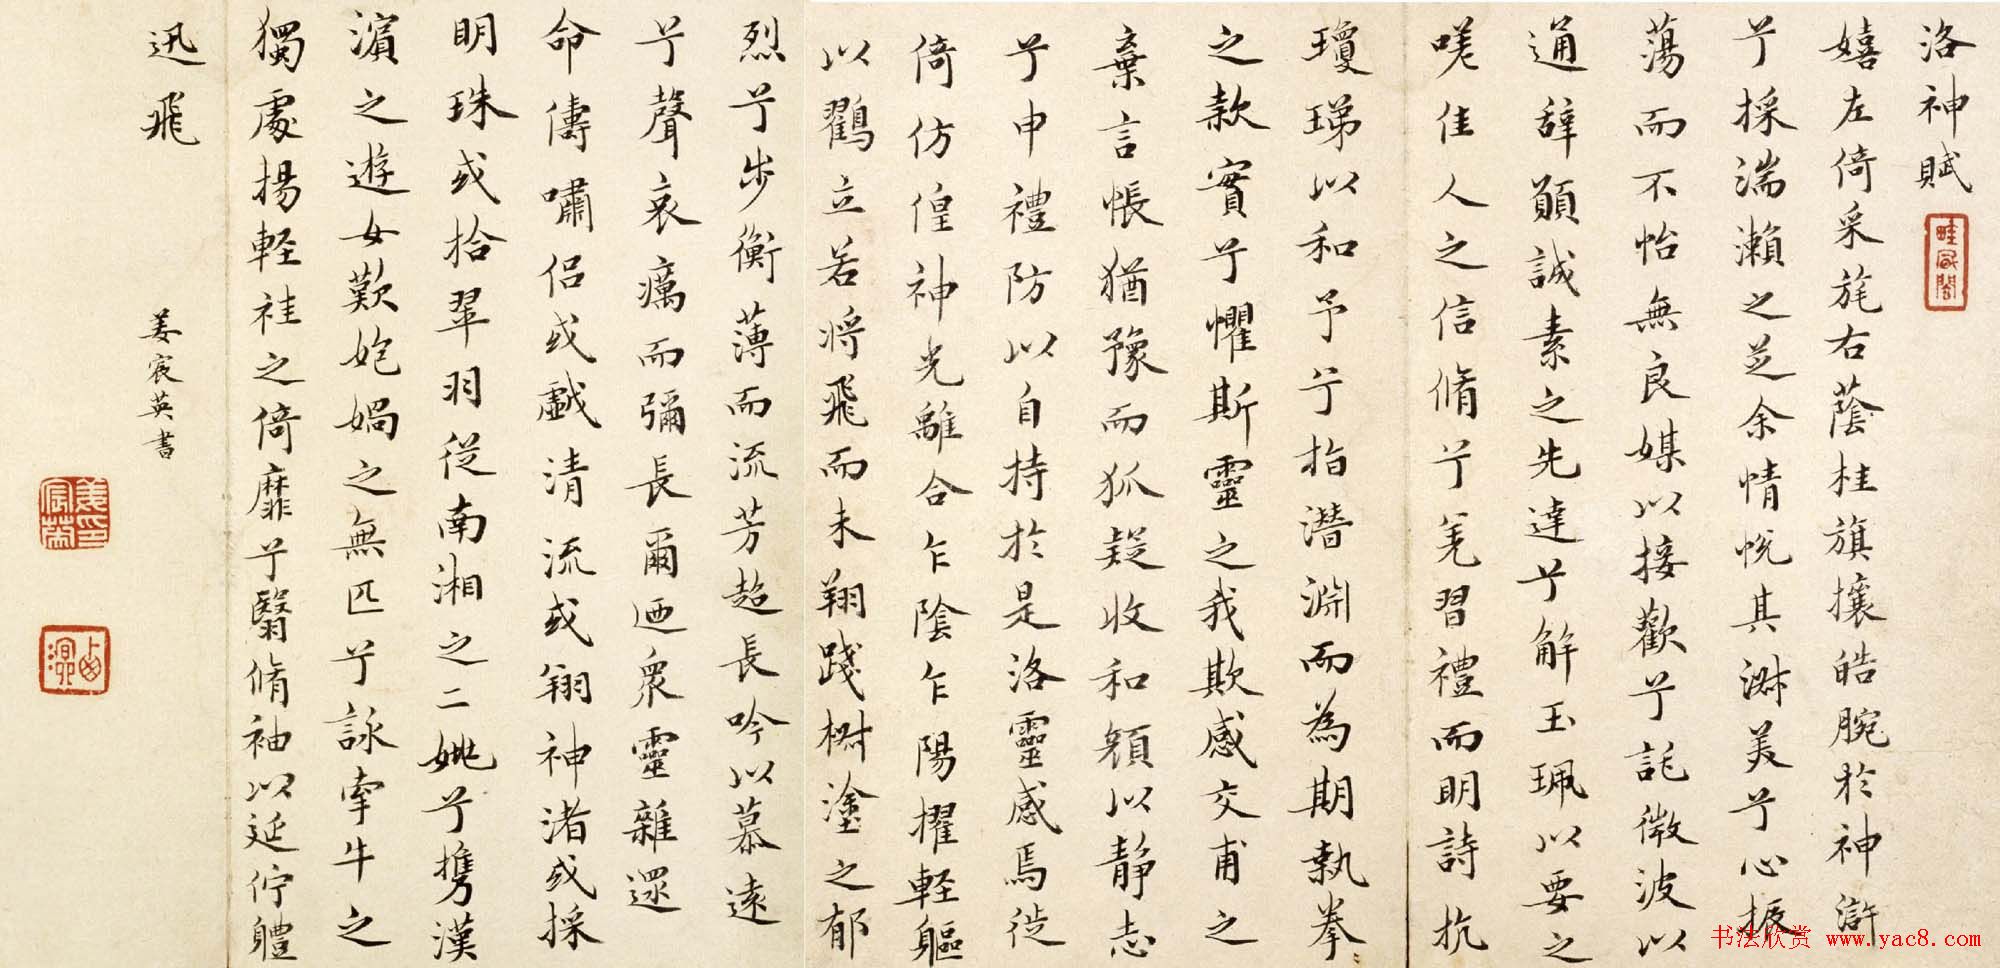 洛神賦
嬉左倚采旄右蔭桂旗攘皓腕於神滸
兮採湍瀨之芝余情悅其淑美兮心振
蕩而不怡無良媒以接歡兮託微波以
通辭願誠素之先達兮解玉珮以要之
嗟佳人之信脩兮羌習禮而明詩抗
瓊珶以和予兮指潛淵而為期執拳〻
之款實兮懼斯靈之我欺感交甫之
棄言悵猶豫而狐疑收和顏以静志
兮申禮防以自持於是洛靈感焉徙
倚仿偟神光離合乍陰乍陽擢軽軀
以鸖立若將飛而未翔踐椒塗之郁
烈兮步衡薄而流芳超長吟以慕遠
兮聲哀癘而彌長爾迺衆靈雜遝
命儔嘯侶或戲清流或翔神渚或採
明珠或拾翠羽從南湘之二姚兮攜漢
濱之遊女歎媧之無匹兮詠牽牛之
獨處揚軽袿之倚靡兮翳脩袖以延佇體
迅飛
姜宸英書
姜宸英印
书法欣赏 www.yac8.com